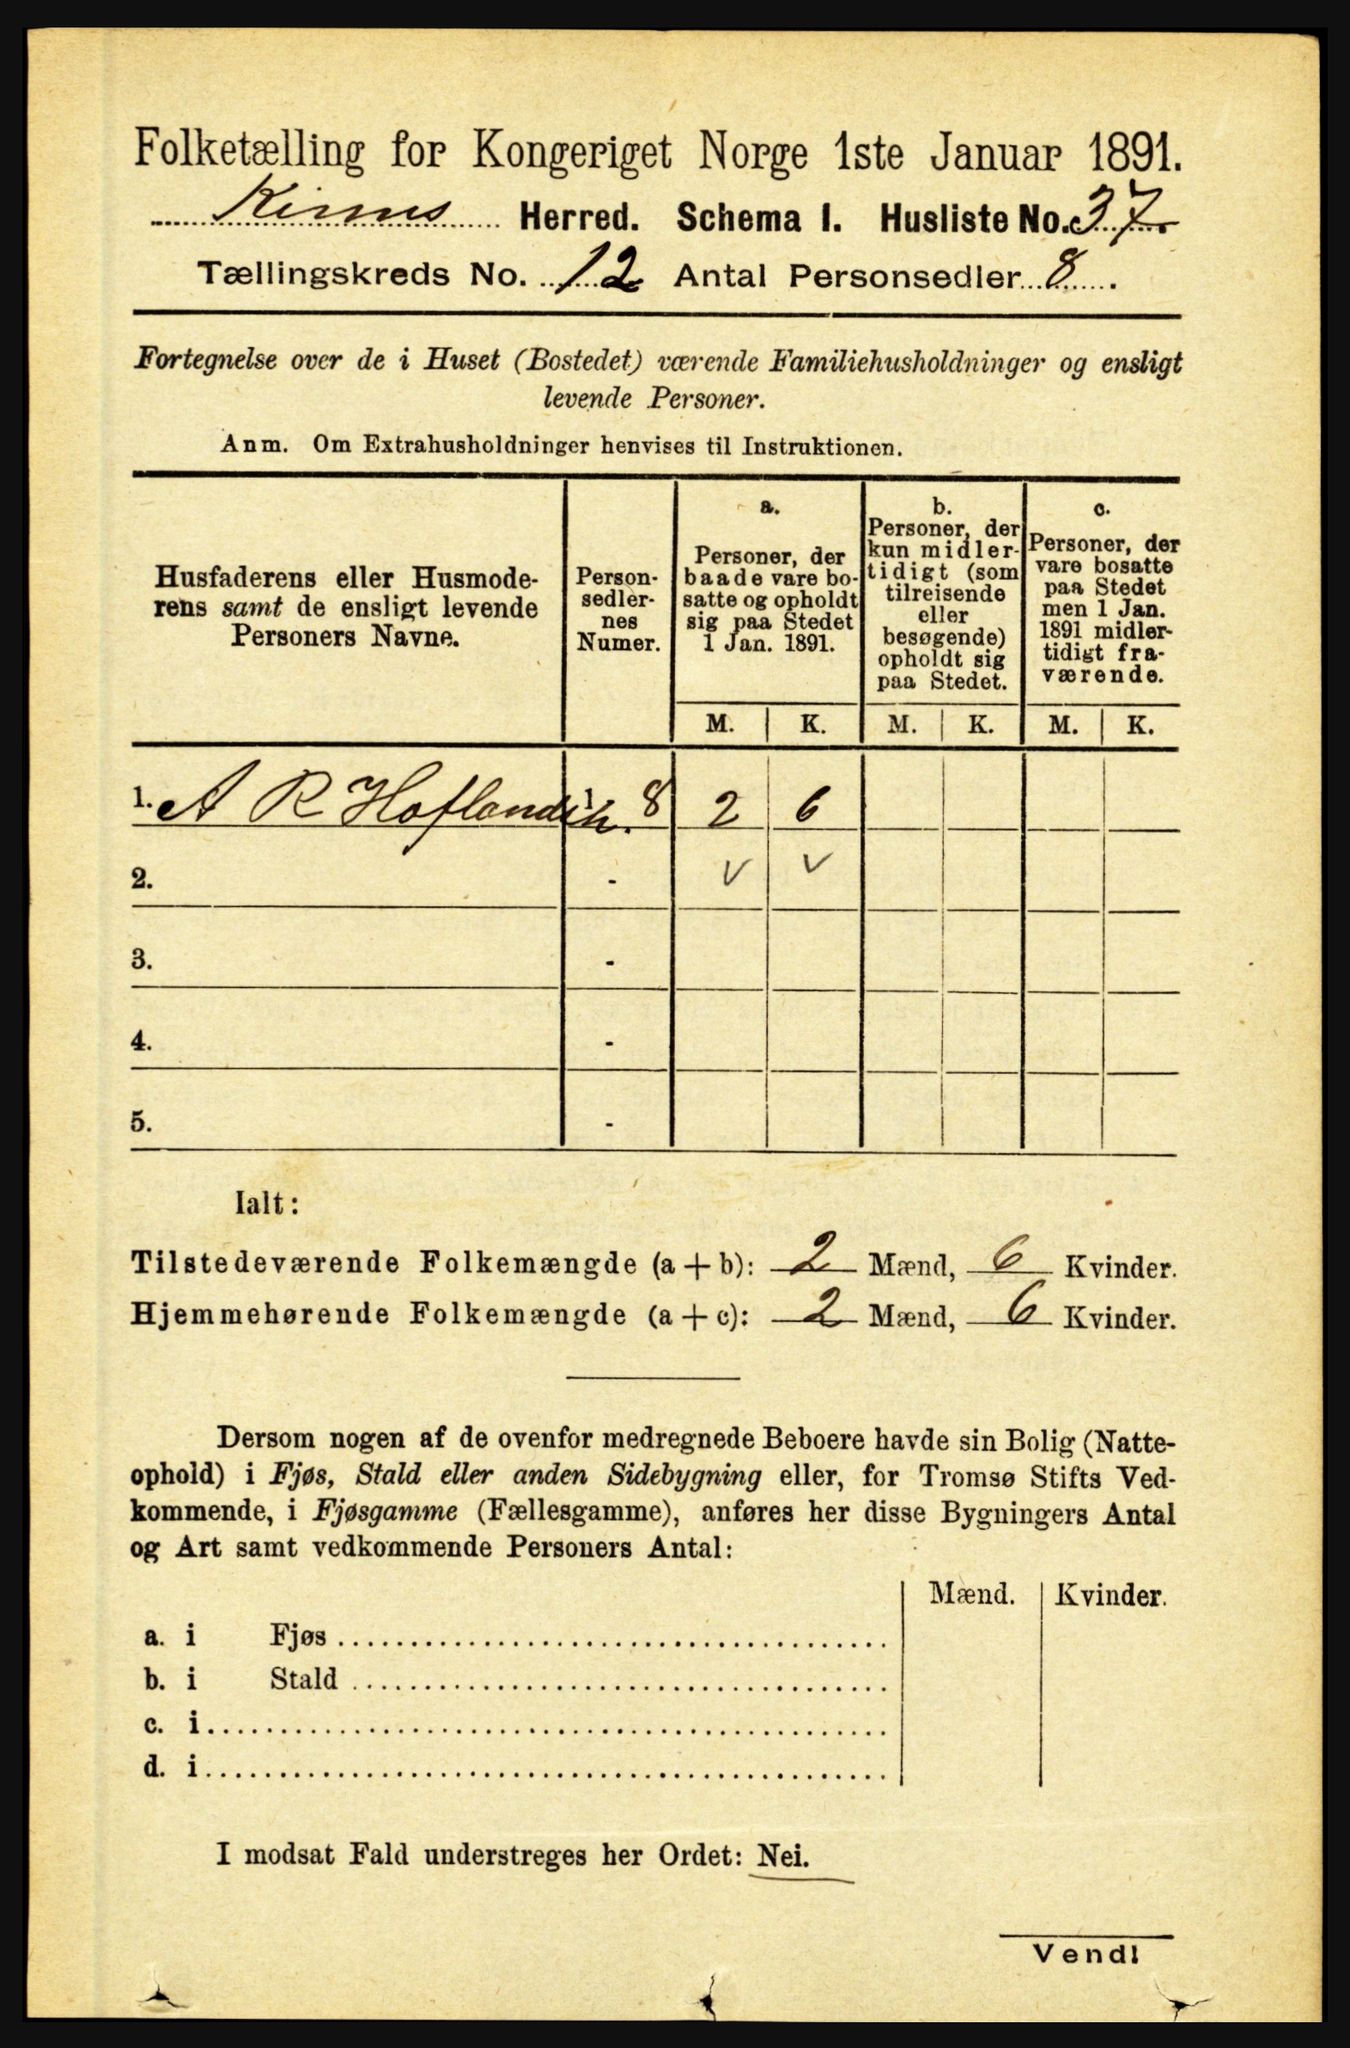 Folketælling for Kongeriget Norge 1ste Januar 1891.
Kinns Herred. Schema I. Husliste No. 37
Tællingskreds No. 12 Antal Personsedler 8.
Fortegnelse over de i Huset (Bostedet) værende Familiehusholdninger og ensligt
levende Personer.
Anm. Om Extrahusholdninger henvises til Instruktionen.
Husfaderens eller Husmode-
rens samt de ensligt levende
Personers Navne.
Person-
sedler-
nes
Numer.
a.
Personer, der
baade vare bo-
satte og opholdt
sig paa Stedet
1 Jan. 1891.
b.
Personer, der
kun midler-
tidigt (som
tilreisende
eller
besøgende)
opholdt sig
paa Stedet.
c.
Personer, der
vare bosatte
paa Stedet
men 1 Jan.
1891 midler-
tidigt fra-
værende.
M. K. M. K. M. K.
1. A R Hofland 8 2 6
2. - v v
3. -
4. -
5. -
Ialt:
Tilstedeværende Folkemængde (a + b): 2 Mænd, 6 Kvinder.
Hjemmehørende Folkemængde (a + c): 2 Mænd, 6 Kvinder.
Dersom nogen af de ovenfor medregnede Beboere havde sin Bolig (Natte-
ophold) i Fjøs, Stald eller anden Sidebygning eller, for Tromsø Stifts Ved-
kommende, i Fjøsgamme (Fællesgamme), anføres her disse Bygningers Antal
og Art samt vedkommende Personers Antal:
Mænd. Kvinder.
a. i Fjøs
b. i Stald
c. i
d. i
I modsat Fald understreges her Ordet: Nei.
Vend!